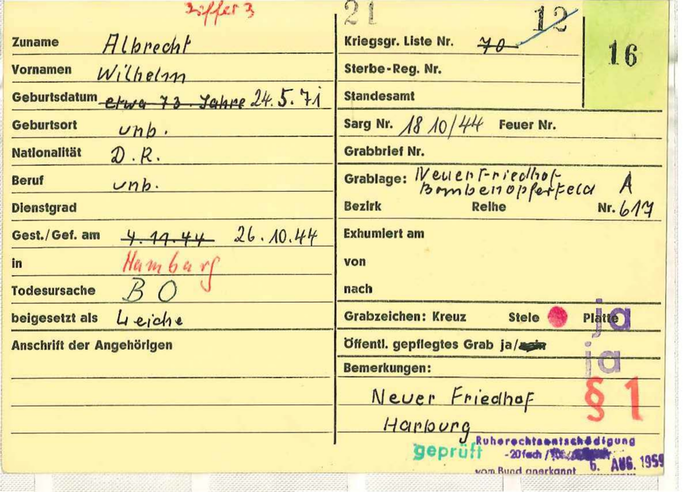 Ziffer 3
21
12
16
Zuname Albrecht
Vornamen Wilhelm
Geburtsdatum etwa 73 Jahre 24.5.71
Geburtsort unb.
Nationalität D.R.
Beruf unb.
Dienstgrad
Gest./Gef. am 4.11.44 26.10.44
in Hamburg
Todesursache BO
beigesetzt als Leiche
Anschrift der Angehörigen
Kriegsgr. Liste Nr. 70
Sterbe-Reg. Nr.
Standesamt
Sarg Nr. 1810/44 Feuer Nr.
Grabbrief Nr.
Grablage: Neuer Friedhof
Bombenopferfeld A
Bezirk Reihe Nr. 617
Exhumiert am
von
nach
Grabzeichen: Kreuz Stele Platte ja
Öffentl. gepflegtes Grab ja/nein
ja
Bemerkungen:
§ 1
Neuer Friedhof
Harburg
geprüft
Ruherechtsentschädigung
-20fach /
vom Bund anerkannt 6. AUG. 1959